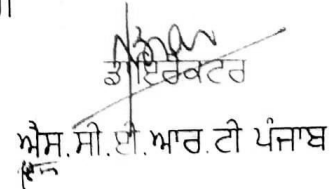 ਡਾਇਰੈਕਟਰ
ਐਸ.ਸੀ.ਈ.ਆਰ.ਟੀ ਪੰਜਾਬ